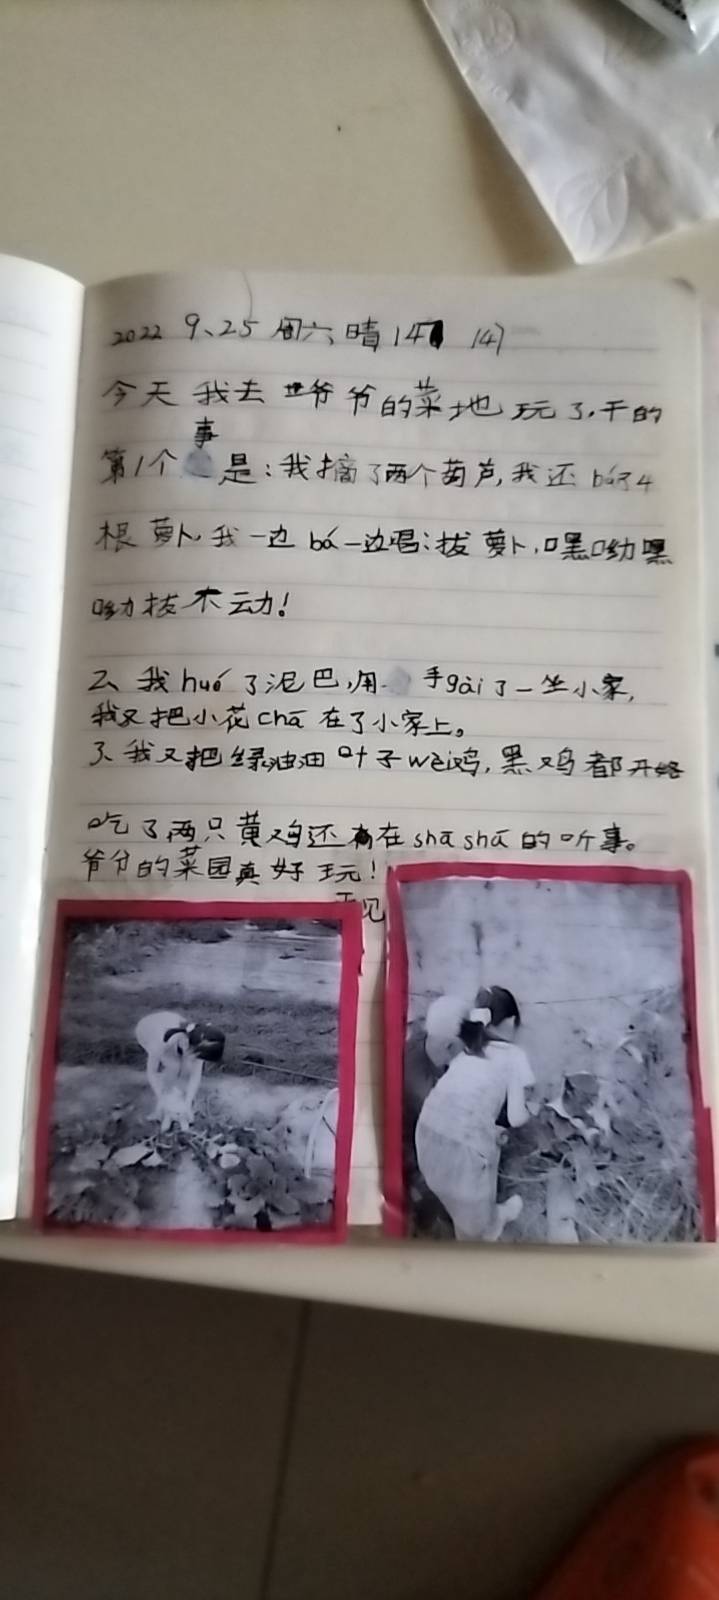 2022 9、25 周六 晴 147
今天 我去 爷爷的菜地玩了，干的
事
第1个 是：我摘了两个葫芦，我还bá了4
根萝卜，我一边bá一边唱：拔萝卜，嘿呦嘿
呦拔不动！
2、我huó了泥巴，用 手gài了一坐小家，
我又把小花chā在了小家上。
3、我又把绿油油叶子wèi鸡，黑鸡都开始
吃了两只黄鸡还在shā shā的听事。
爷爷的菜园真好玩！
见